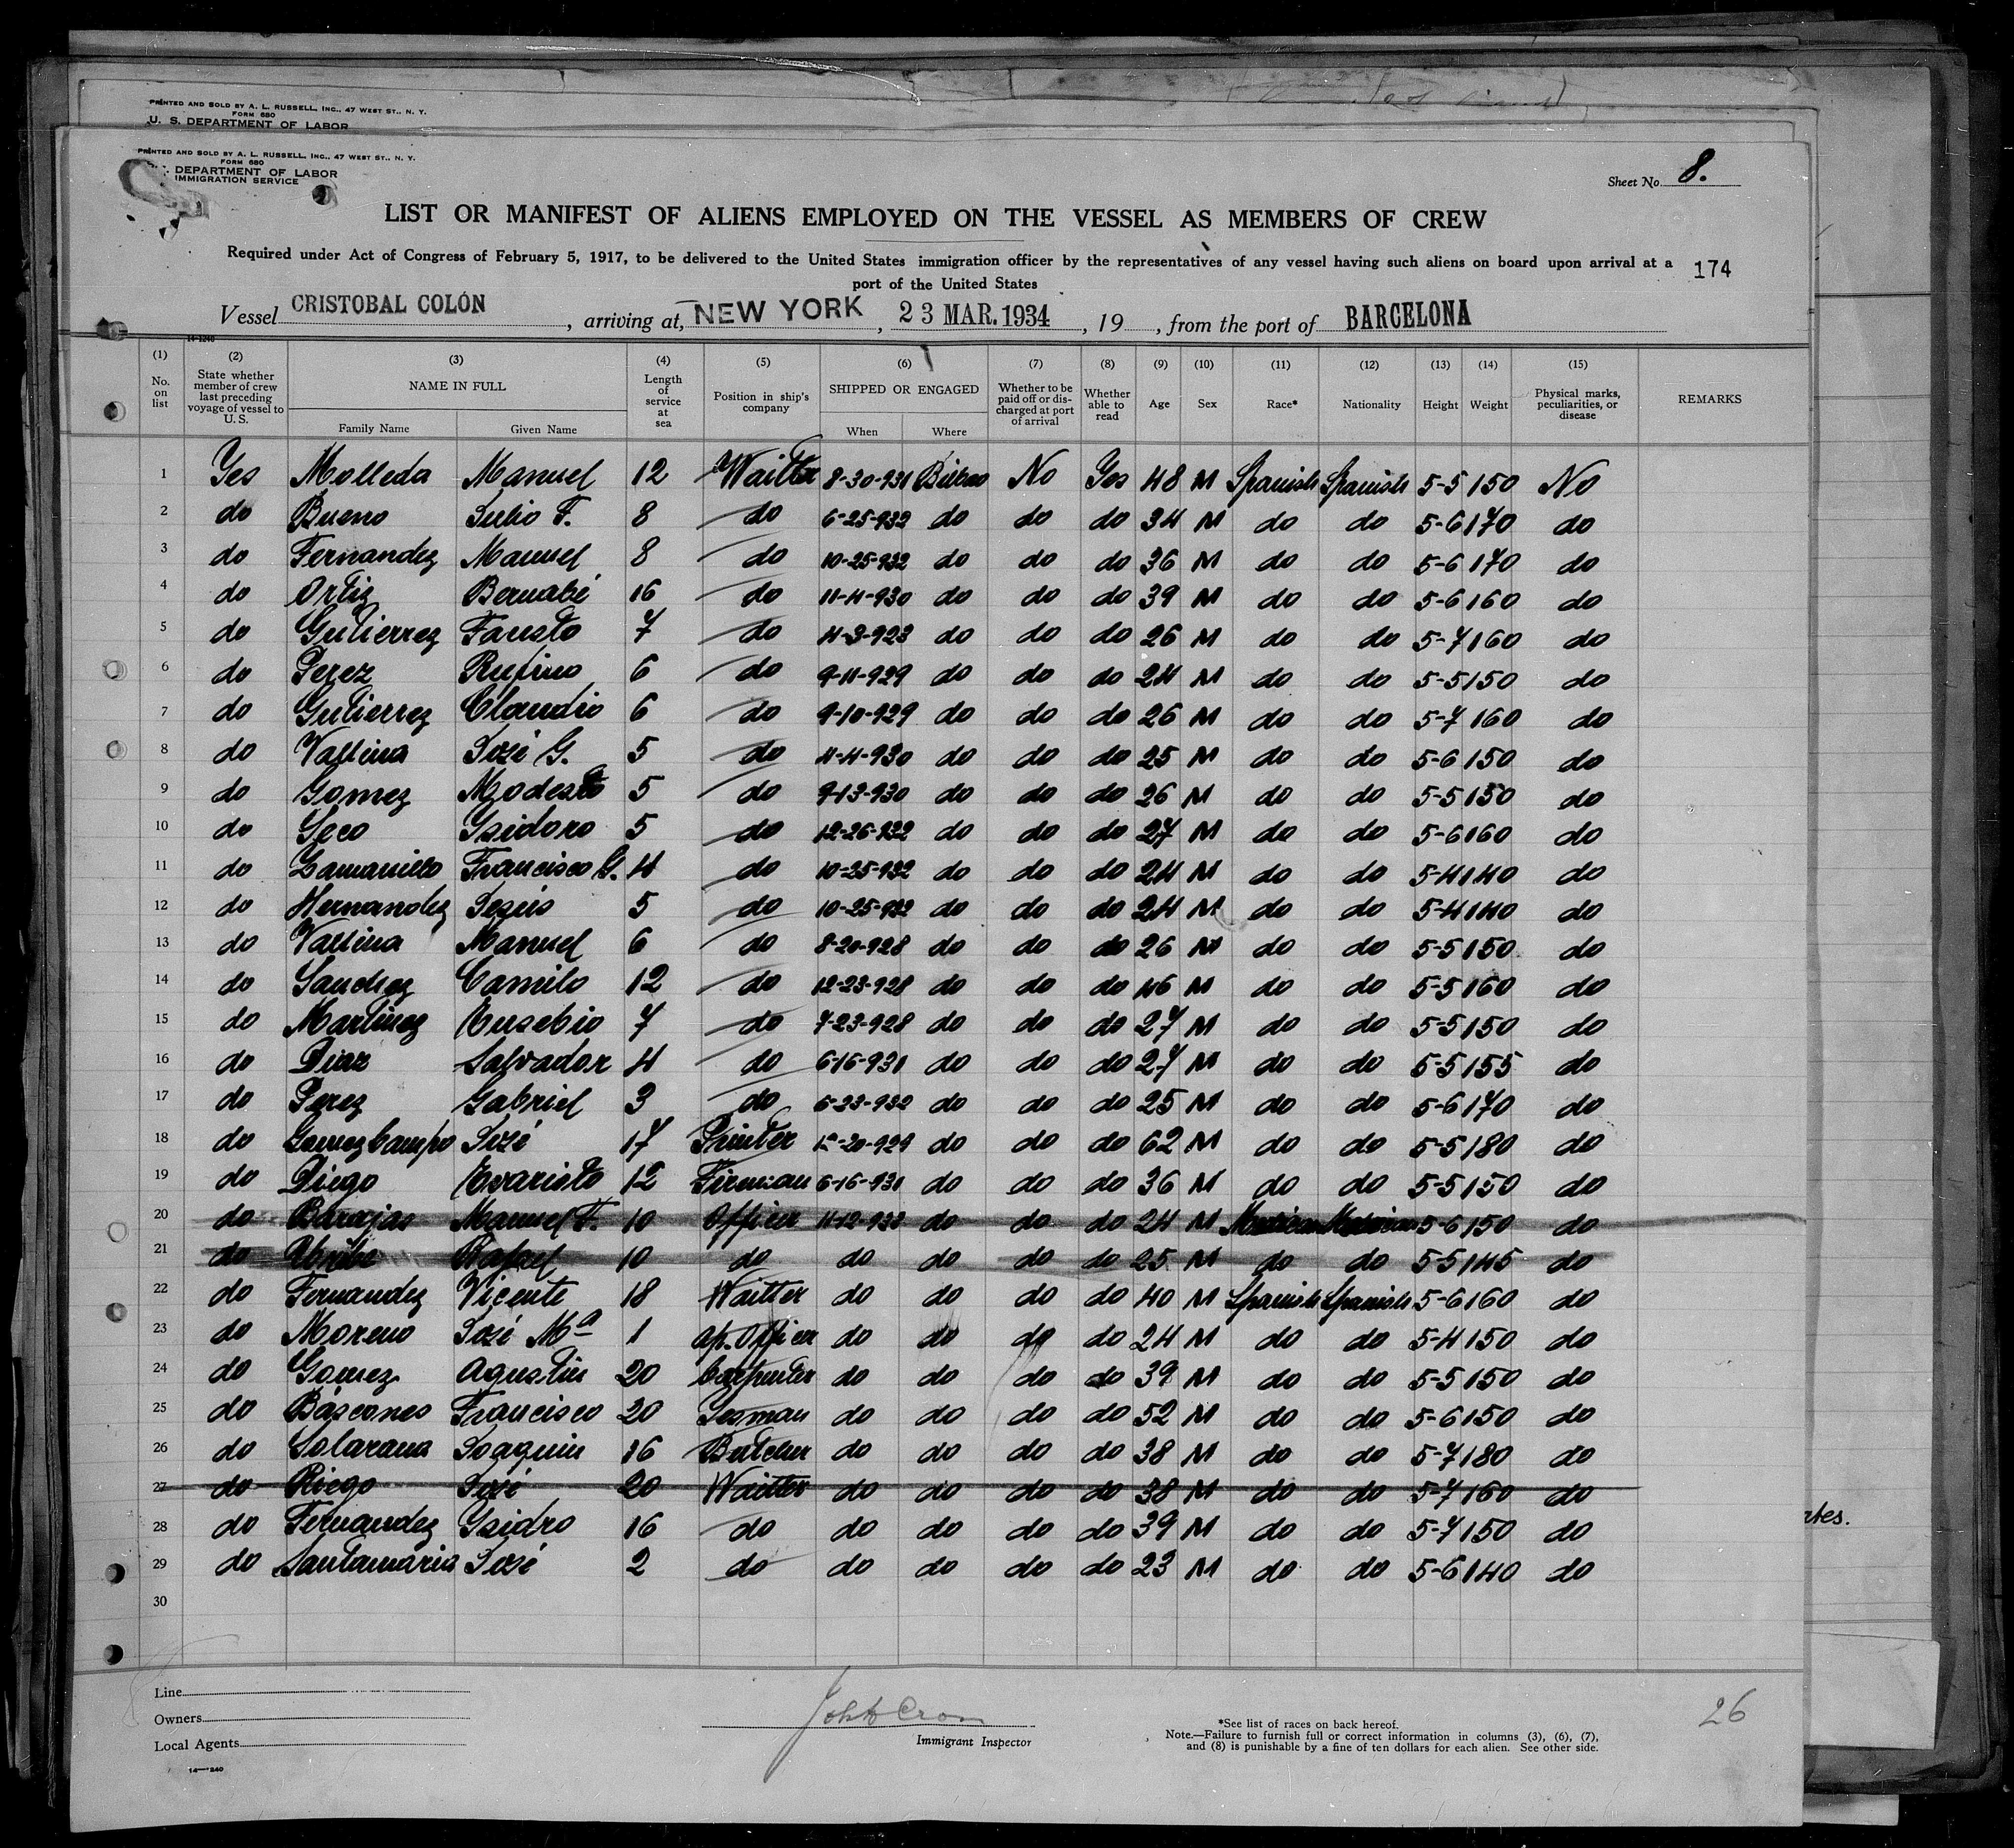 PRINTED AND SOLD BY A. L. RUSSELL, INC., 47 WEST ST., N. Y.
FORM 680
U. S. DEPARTMENT OF LABOR
PRINTED AND SOLD BY A. L. RUSSELL, INC., 47 WEST ST., N. Y.
FORM 680
DEPARTMENT OF LABOR
IMMIGRATION SERVICE
Sheet No. 8.
LIST OR MANIFEST OF ALIENS EMPLOYED ON THE VESSEL AS MEMBERS OF CREW
Required under Act of Congress of February 5, 1917, to be delivered to the United States immigration officer by the representatives of any vessel having such aliens on board upon arrival at a
port of the United States
174
Vessel CRISTOBAL COLÓN, arriving at, NEW YORK, 23 MAR. 1934, 19, from the port of BARCELONA
14-1240
(1) (2) (3) (4) (5) (6) (7) (8) (9) (10) (11) (12) (13) (14) (15)
No. on list State whether member of crew last preceding voyage of vessel to U. S. NAME IN FULL Family Name Given Name Length of service at sea Position in ship's company SHIPPED OR ENGAGED When Where Whether to be paid off or discharged at port of arrival Whether able to read Age Sex Race* Nationality Height Weight Physical marks, peculiarities, or disease REMARKS
1 Yes Molleda Manuel 12 Waitter 8-30-931 Bilbao No Yes 48 M Spanish Spanish 5-5 150 No
2 do Bueno Julio F. 8 do 6-25-932 do do do 34 M do do 5-6 170 do
3 do Fernandez Manuel 8 do 10-25-932 do do do 36 M do do 5-6 170 do
4 do Ortiz Bernabé 16 do 11-4-930 do do do 39 M do do 5-6 160 do
5 do Gutierrez Fausto 7 do 4-3-923 do do do 26 M do do 5-7 160 do
6 do Perez Rufino 6 do 9-11-929 do do do 24 M do do 5-5 150 do
7 do Gutierrez Claudio 6 do 9-10-929 do do do 26 M do do 5-7 160 do
8 do Vallina José G. 5 do 4-4-930 do do do 25 M do do 5-6 150 do
9 do Gomez Modesto 5 do 9-13-930 do do do 26 M do do 5-5 150 do
10 do Seco Ysidoro 5 do 12-26-932 do do do 27 M do do 5-6 160 do
11 do Zamanillo Francisco G. 4 do 10-25-932 do do do 24 M do do 5-4 140 do
12 do Hernandez Jesús 5 do 10-25-932 do do do 24 M do do 5-4 140 do
13 do Vallina Manuel 6 do 8-20-928 do do do 26 M do do 5-5 150 do
14 do Sanchez Camilo 12 do 12-23-928 do do do 46 M do do 5-5 160 do
15 do Martinez Eusebio 7 do 7-23-928 do do do 27 M do do 5-5 150 do
16 do Diaz Salvador 4 do 6-16-931 do do do 27 M do do 5-5 155 do
17 do Perez Gabriel 3 do 6-23-932 do do do 25 M do do 5-6 170 do
18 do Gomez Campo José 17 Printer 12-20-929 do do do 62 M do do 5-5 180 do
19 do Diego Evaristo 12 Fireman 6-16-931 do do do 36 M do do 5-5 150 do
20 do Barajas Manuel F. 10 Officer 11-12-933 do do do 24 M Mexican Mexican 5-6 150 do
21 do Uribe Rafael 10 do do do do do 25 M do do 5-5 145 do
22 do Fernandez Vicente 18 Waitter do do do do 40 M Spanish Spanish 5-6 160 do
23 do Moreno José Mª 1 Ap. Officer do do do do 24 M do do 5-4 150 do
24 do Gomez Agustin 20 Carpenter do do do do 39 M do do 5-5 150 do
25 do Báscones Francisco 20 Seaman do do do do 52 M do do 5-6 150 do
26 do Solarana Joaquin 16 Butcher do do do do 38 M do do 5-7 180 do
27 do Riego José 20 Waitter do do do do 38 M do do 5-7 160 do
28 do Fernandez Ysidro 16 do do do do do 39 M do do 5-7 150 do
29 do Santamaria José 2 do do do do do 23 M do do 5-6 140 do
30
Line
Owners
Local Agents
14-1240
Immigrant Inspector
*See list of races on back hereof.
Note.—Failure to furnish full or correct information in columns (3), (6), (7),
and (8) is punishable by a fine of ten dollars for each alien. See other side.
26